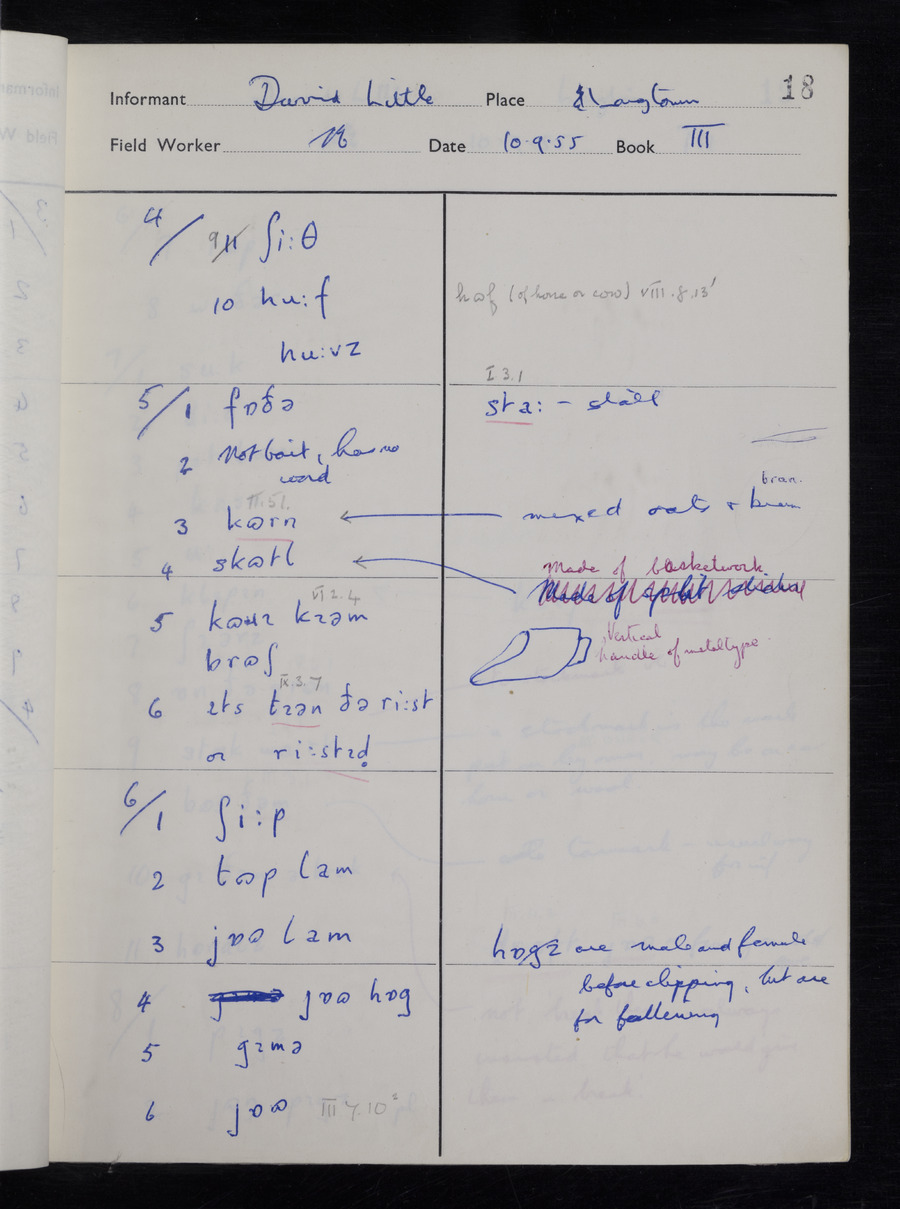 18
Informant David Little Place Longtown
Field Worker Date 10.9.55 Book III
4/ 9 ʃi:θ
10 hu:f
hɷf (of horse or cow) VIII.8.13'
hu:vz
I 3.1
5/1 fɒðə
sta: – stall
2 Not bait, has no
word
bran.
II.5.1.
3 kɷrn
mixed oats + bran
4 skɷtl
Made of basketwork
VI 2.4
5 kʀəm
Vertical
handle of metal type
brɷʃ
IX.3.7
6 ɪts tɪən ðə ri:st
or ri:stɪd̥
6/1 ʃi:p
2 tɷp lam
3 jɒɷ lam
hɒgz are male and female
before clipping, but are
for fattening
4 jɒɷ hɒg
5 gɪmə
6 jɒɷ III 7.10²